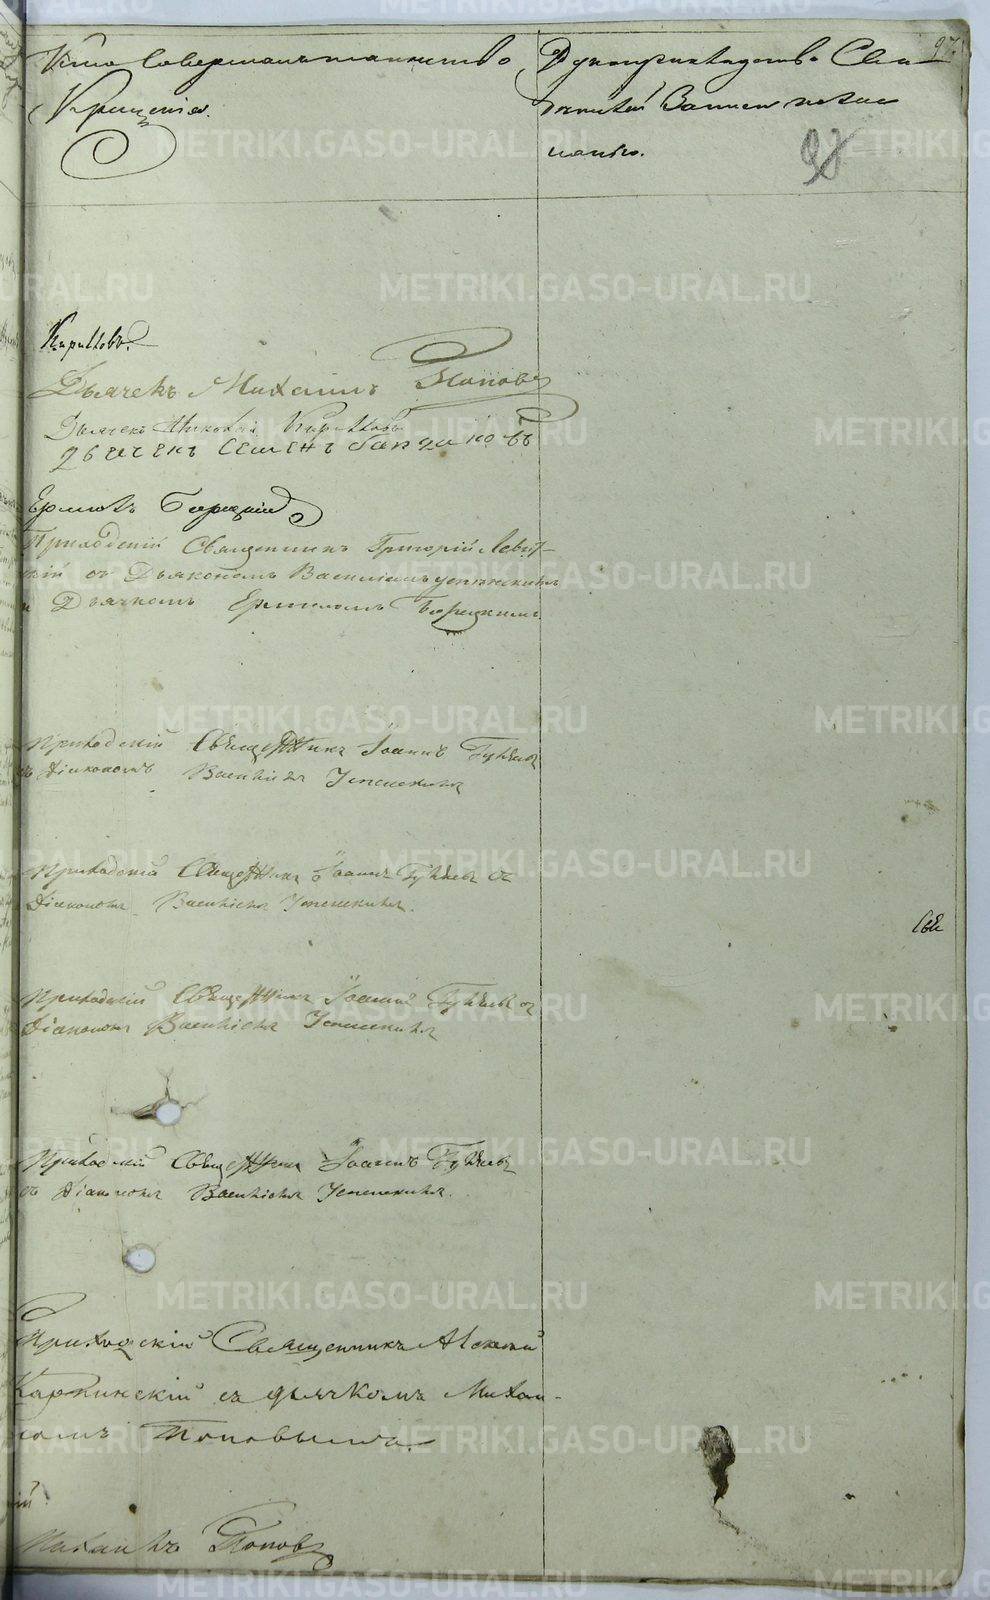 Кто совершал таинство
Крещенія.
Рукоприкладство Сви
записи
97.
98
Кириловъ.
Дьячекъ Михаилъ Поповъ
Дьячекъ Николай Кириловъ
дьячекъ Семенъ
Ермилъ Борецкій
Приходскій Священникъ Григорій Левит-
скій съ Дьякономъ Василіемъ Успенскимъ
и Дьячкомъ Ермиломъ Борецкимъ.
Приходскій Священникъ Іоаннъ
съ Діакономъ Василіемъ Успенскимъ
Приходскій Священникъ Іоаннъ съ
Діакономъ Василіемъ Успенскимъ.
Приходскій Священникъ Іоаннъ съ
Діакономъ Василіемъ Успенскимъ
Приходскій Священникъ Іоаннъ
съ Діакономъ Василіемъ Успенскимъ.
Приходскій Священникъ Алексій
Карпинскій съ дьячкомъ Михаи-
ломъ Поповымъ.
Михаилъ Поповъ
METRIKI.GASO-URAL.RU